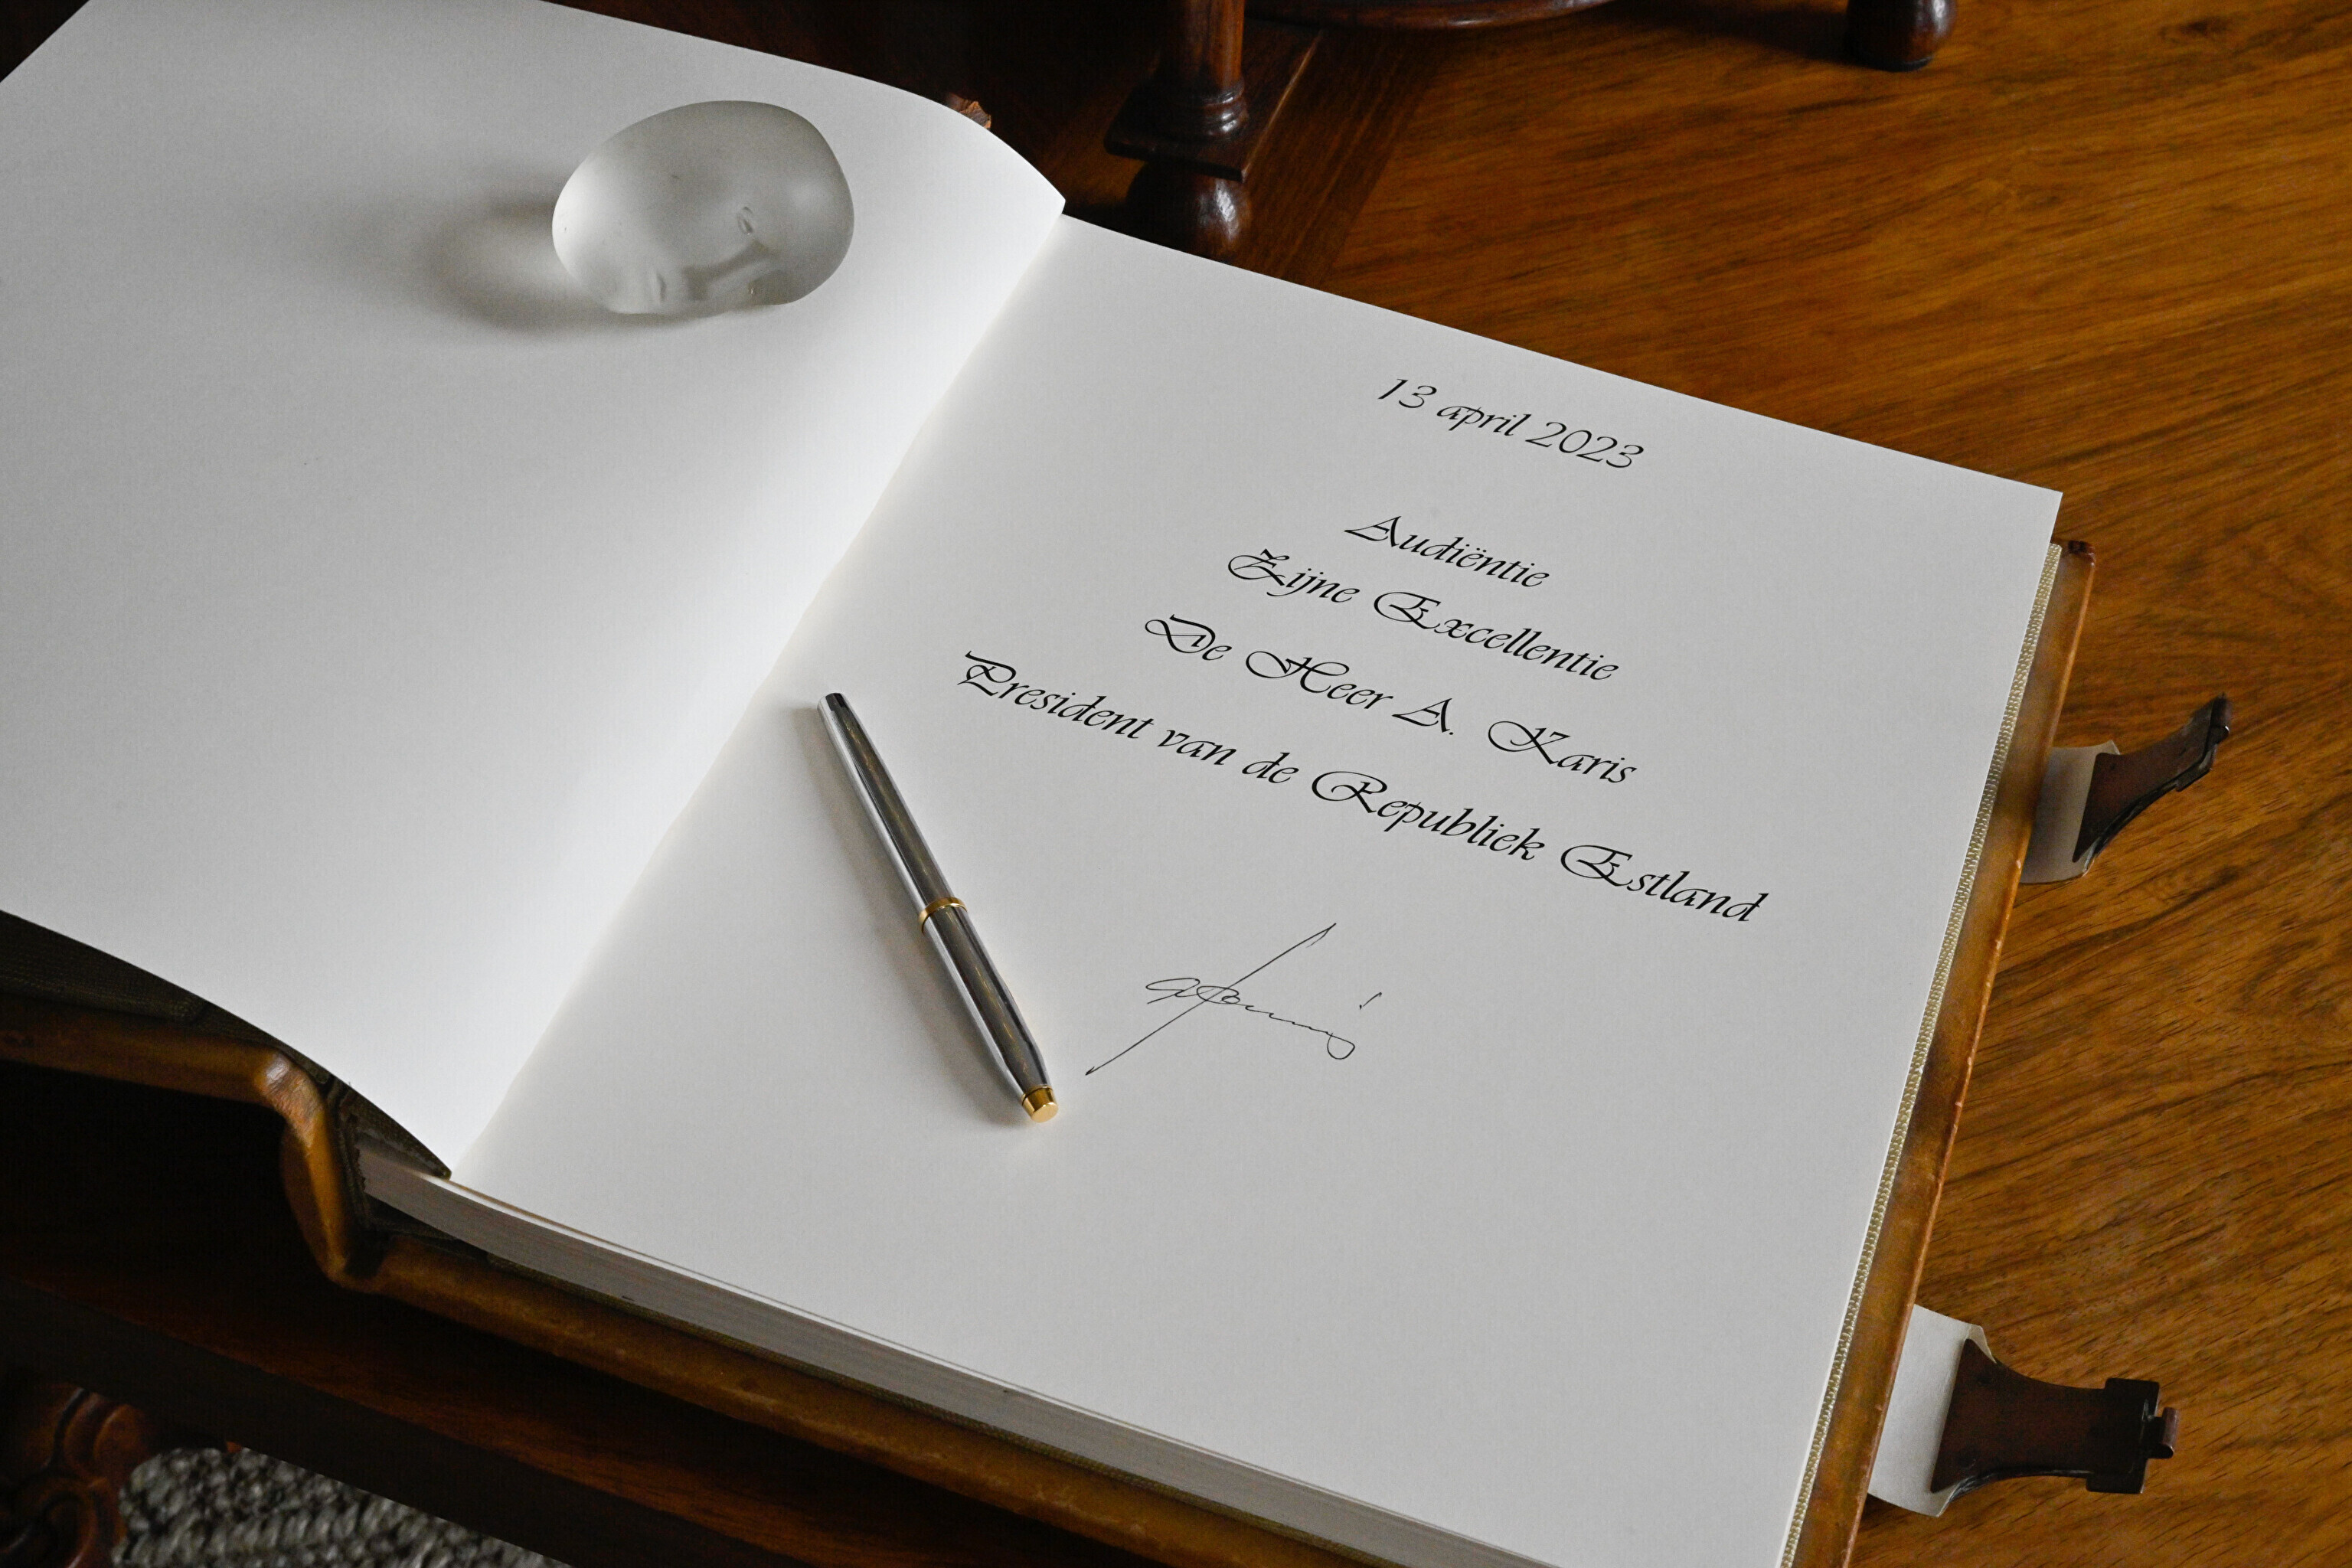 13 april 2023
Audiëntie
Zijne Excellentie
De Heer A. Karis
President van de Republiek Estland